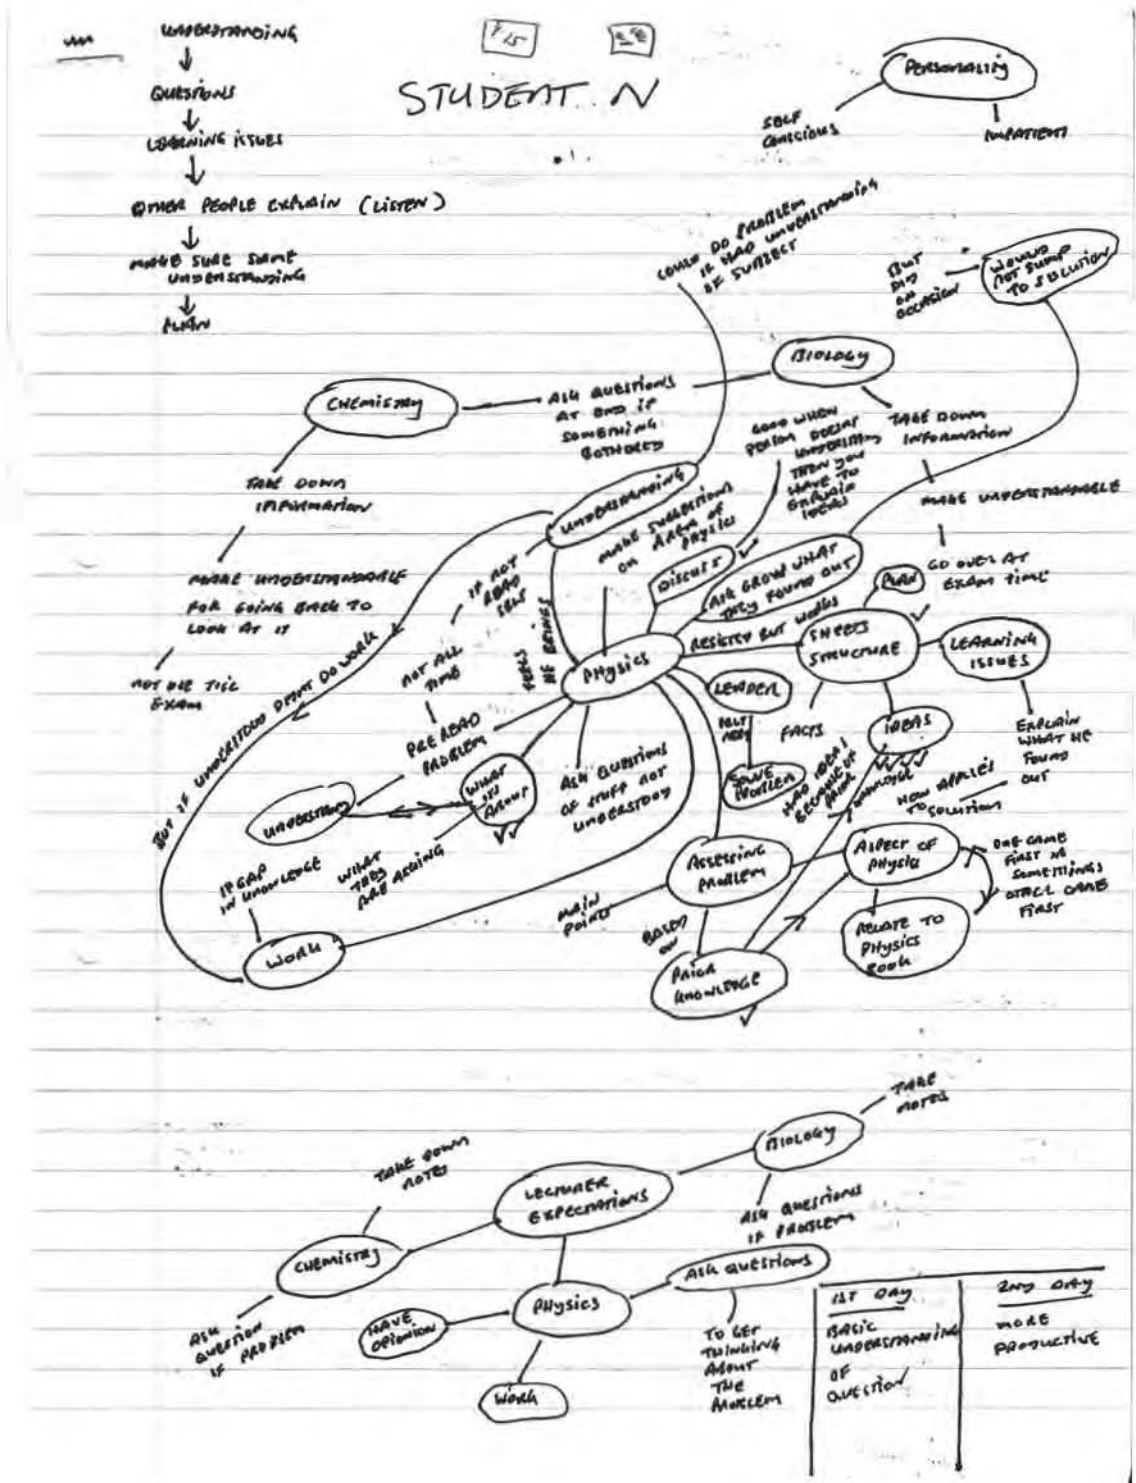 UNDERSTANDING
QUESTIONS
LEARNING ISSUES
OTHER PEOPLE EXPLAIN (LISTEN)
MAKE SURE SAME
UNDERSTANDING
PLAN
STUDENT N
PERSONALITY
SELF
CONSCIOUS
IMPATIENT
COULD DO PROBLEM
IF HAD UNDERSTANDING
OF SUBJECT
BUT
DID
ON
OCCASION
WOULD
NOT JUMP
TO SOLUTION
BIOLOGY
CHEMISTRY
ASK QUESTIONS
AT END IF
SOMETHING
BOTHERED
GOOD WHEN
PERSON DOESNT
UNDERSTAND
THEN YOU
HAVE TO
EXPLAIN
IDEAS
TAKE DOWN
INFORMATION
MAKE UNDERSTANDABLE
GO OVER AT
EXAM TIME
TAKE DOWN
INFORMATION
MAKE UNDERSTANDABLE
FOR GOING BACK TO
LOOK AT IT
NOT USE TILL
EXAM
UNDERSTANDING
MAKE SUGGESTIONS
ON AREA OF
PHYSICS
DISCUSS
ASK GROUP WHAT
THEY FOUND OUT
PLAN
IF NOT
READ
SELF
NOT ALL
TIME
FEELS
HE BRINGS
PHYSICS
RESISTED BUT WORKS
SHEETS
STRUCTURE
LEARNING
ISSUES
LEADER
FACTS
IDEAS
EXPLAIN
WHAT HE
FOUND
OUT
BUT IF UNDERSTOOD DIDNT DO WORK
PRE READ
PROBLEM
WHAT
ITS
ABOUT
UNDERSTAND
ASK QUESTIONS
OF STUFF NOT
UNDERSTOOD
SOLVE
PROBLEM
HAD IDEAS
BECAUSE OF
PRIOR
KNOWLEDGE
HOW APPLIES
TO SOLUTION
WHAT
THEY
ARE ASKING
IF GAP
IN KNOWLEDGE
WORK
ASSESSING
PROBLEM
MAIN
POINTS
ASPECT OF
PHYSICS
ONE CAME
FIRST
SOMETIMES
OTHER CAME
FIRST
RELATE TO
PHYSICS
BOOK
BASED
ON
PRIOR
KNOWLEDGE
TAKE
NOTES
BIOLOGY
TAKE DOWN
NOTES
LECTURER
EXPECTATIONS
ASK QUESTIONS
IF PROBLEM
CHEMISTRY
ASK
QUESTION
IF PROBLEM
PHYSICS
ASK QUESTIONS
HAVE
OPINION
WORK
TO GET
THINKING
ABOUT
THE
PROBLEM
1ST DAY
BASIC
UNDERSTANDING
OF
QUESTION
2ND DAY
MORE
PRODUCTIVE